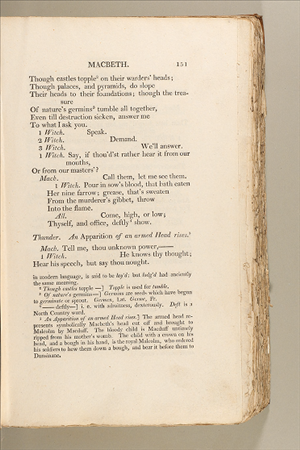 MACBETH. 151
Though castles topple⁵ on their warders' heads;
Though palaces, and pyramids, do slope
Their heads to their foundations; though the trea-
sure
Of nature's germins⁶ tumble all together,
Even till destruction sicken, answer me
To what I ask you.
1 Witch. Speak.
2 Witch. Demand.
3 Witch. We'll answer.
1 Witch. Say, if thou'd'st rather hear it from our
mouths,
Or from our masters'?
Macb. Call them, let me see them.
1 Witch. Pour in sow's blood, that hath eaten
Her nine farrow; grease, that's sweaten
From the murderer's gibbet, throw
Into the flame.
All. Come, high, or low;
Thyself, and office, deftly⁷ show.
Thunder. An Apparition of an armed Head rises.⁸
Macb. Tell me, thou unknown power,——
1 Witch. He knows thy thought;
Hear his speech, but say thou nought.
in modern language, is said to be lay'd; but lodg'd had anciently
the same meaning.
⁵ Though castles topple —] Topple is used for tumble.
⁶ Of nature's germins—] Germins are seeds which have begun
to germinate or sprout. Germen, Lat. Germe, Fr.
⁷ —— deftly—] i. e. with adroitness, dexterously. Deft is a
North Country word.
⁸ An Apparition of an armed Head rises.] The armed head re-
presents symbolically Macbeth's head cut off and brought to
Malcolm by Macduff. The bloody child is Macduff untimely
ripped from his mother's womb. The child with a crown on his
head, and a bough in his hand, is the royal Malcolm, who ordered
his soldiers to hew them down a bough, and bear it before them to
Dunsinane.